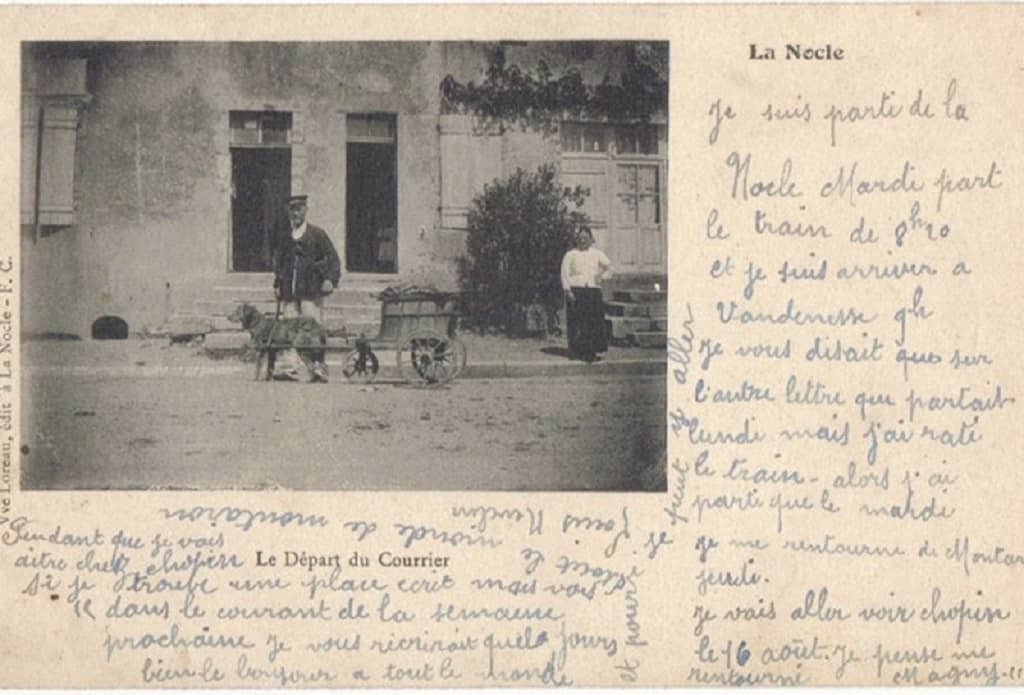 La Nocle
Je suis parti de la
Nocle Mardi part
le train de 8h20
et je suis arriver a
Vandenesse 9h
Je vous disait que sur
l'autre lettre que partait
lundi mais j'ai rati
le train - alors j'ai
parti que le mardi
je me rentourne di Montar
jeudi.
je vais aller voir chopin
le 16 août. Je pense me
rentourné Magny-
Vve Loreau, édit à La Nocle - F. C.
Le Départ du Courrier
Pendant que je vais
aitre chez chopin
si je trouve une place ecrit
dans le courant de la semaine
prochaine je vous récrirait quels jours
bien le bonjour a tout le monde
le monde de montaron
et pour
je peut y aller